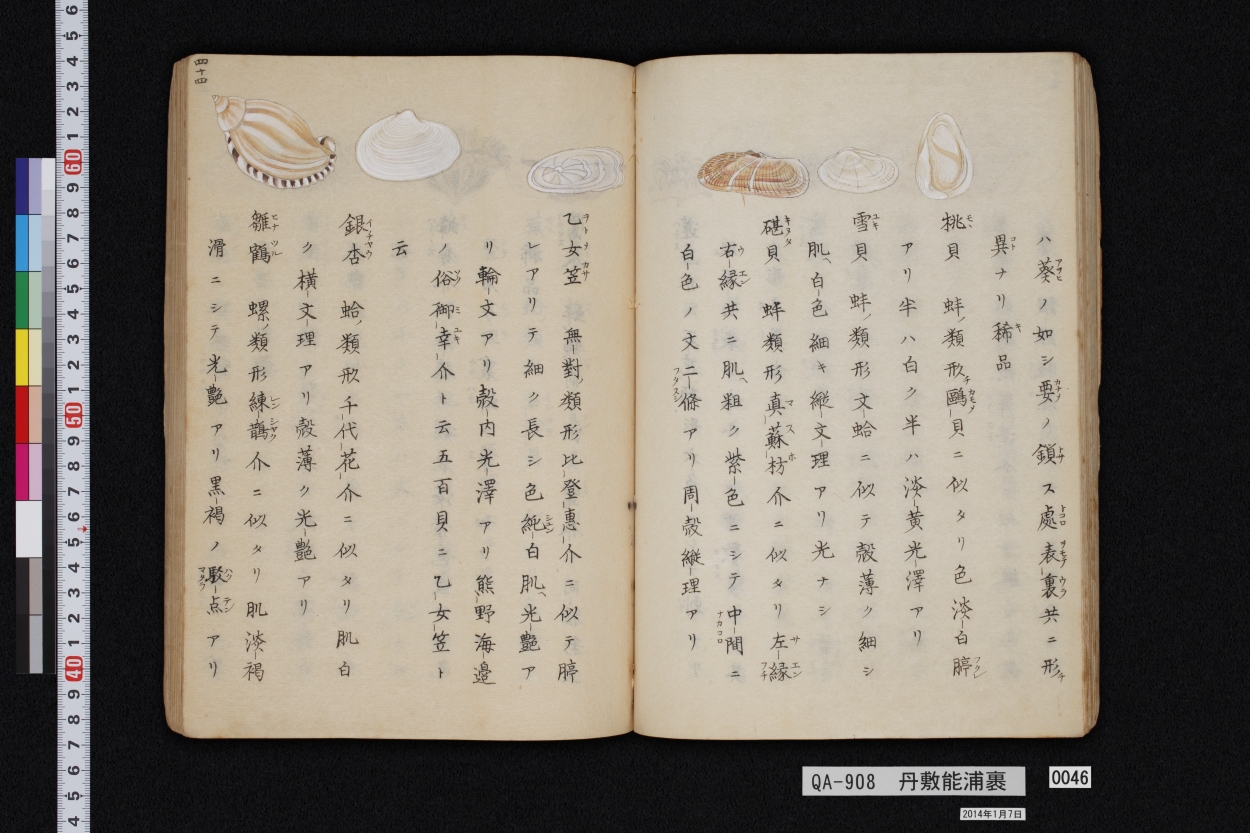 ハ葵ノ如シ要ノ鎖ス處表裏共ニ形
異ナリ稀品
桃貝 蚌ノ類形鷗貝ニ似タリ色淡白膵
アリ半ハ白ク半ハ淡黄光澤アリ
雪貝 蚌ノ類形文蛤ニ似テ殼薄ク細シ
肌白色細キ縦文理アリ光ナシ
碪貝 蚌類形真蘇枋介ニ似タリ左縁
右縁共ニ肌粗ク紫色ニシテ中間ニ
白色ノ文二條アリ周殼縦理アリ
四十四
乙女笠 無對ノ類形比登惠介ニ似テ
レアリテ細ク長シ色純白肌光艶ア
リ輪文アリ殼内光澤アリ熊野海邊
ノ俗御幸介ト云五百貝ニ乙女笠ト
云
銀杏 蛤ノ類形千代花介ニ似タリ肌白
ク横文理アリ殼薄ク光艶アリ
雛鶴 螺ノ類形練鵲介ニ似タリ肌淡褐
滑ニシテ光艶アリ黒褐ノ駁点アリ
QA-908 丹敷能浦裹
0046
2014年1月7日